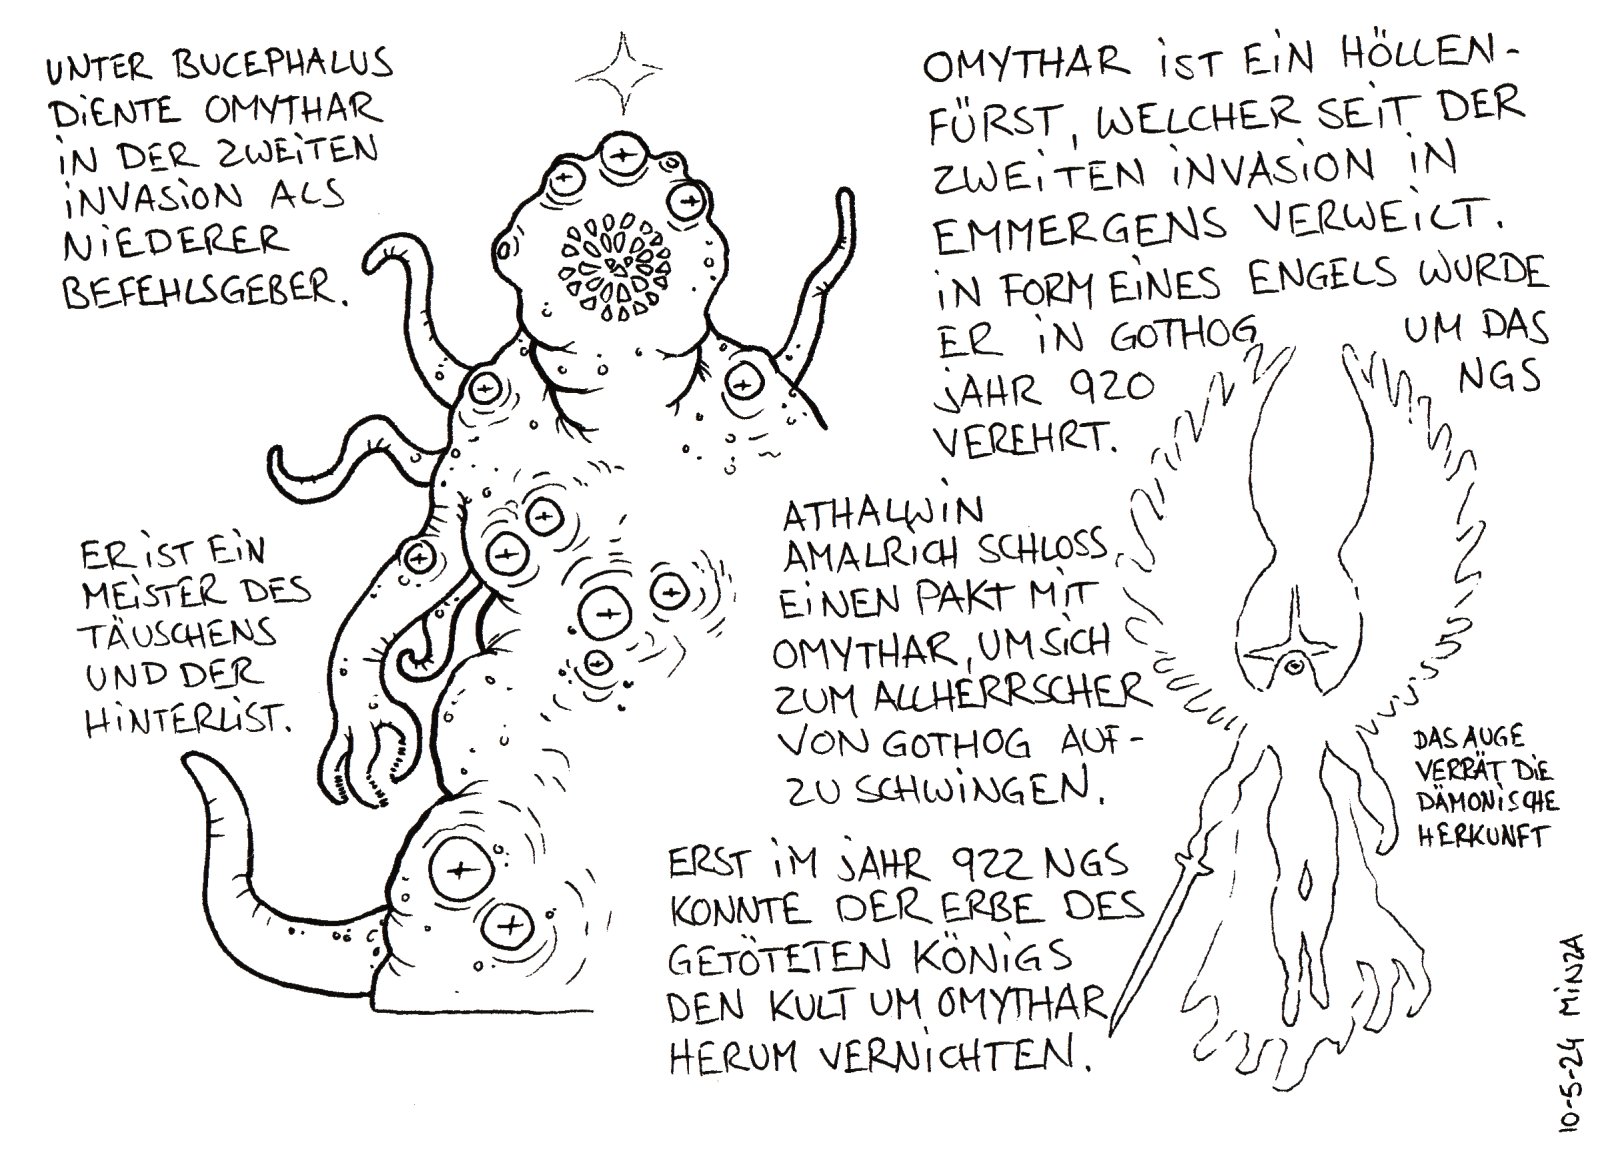 UNTER BUCEPHALUS
DIENTE OMYTHAR
IN DER ZWEITEN
INVASION ALS
NIEDERER
BEFEHLSGEBER.
ER IST EIN
MEISTER DES
TÄUSCHENS
UND DER
HINTERLIST.
OMYTHAR IST EIN HÖLLEN-
FÜRST, WELCHER SEIT DER
ZWEITEN INVASION IN
EMMERGENS VERWEILT.
IN FORM EINES ENGELS WURDE
ER IN GOTHOG UM DAS
JAHR 920 NGS
VEREHRT.
ATHALWIN
AMALRICH SCHLOSS
EINEN PAKT MIT
OMYTHAR, UM SICH
ZUM ALLHERRSCHER
VON GOTHOG AUF-
ZU SCHWINGEN.
DAS AUGE
VERRÄT DIE
DÄMONISCHE
HERKUNFT
ERST IM JAHR 922 NGS
KONNTE DER ERBE DES
GETÖTETEN KÖNIGS
DEN KULT UM OMYTHAR
HERUM VERNICHTEN.
10-5-24 MINZA